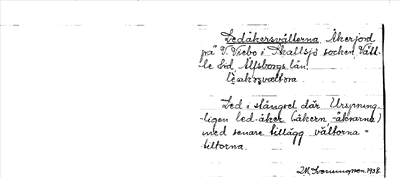 Ledåkersvälterna. Åkerjord
på V. Vrebo i Skallsjö socken, Vätt-
le hd, Älfsborgs län.
Led i stängsel där. Ursprung-
ligen led-åker (åkern -åkrarna)
med senare tillägg vältorna =
tiltorna.
1938.